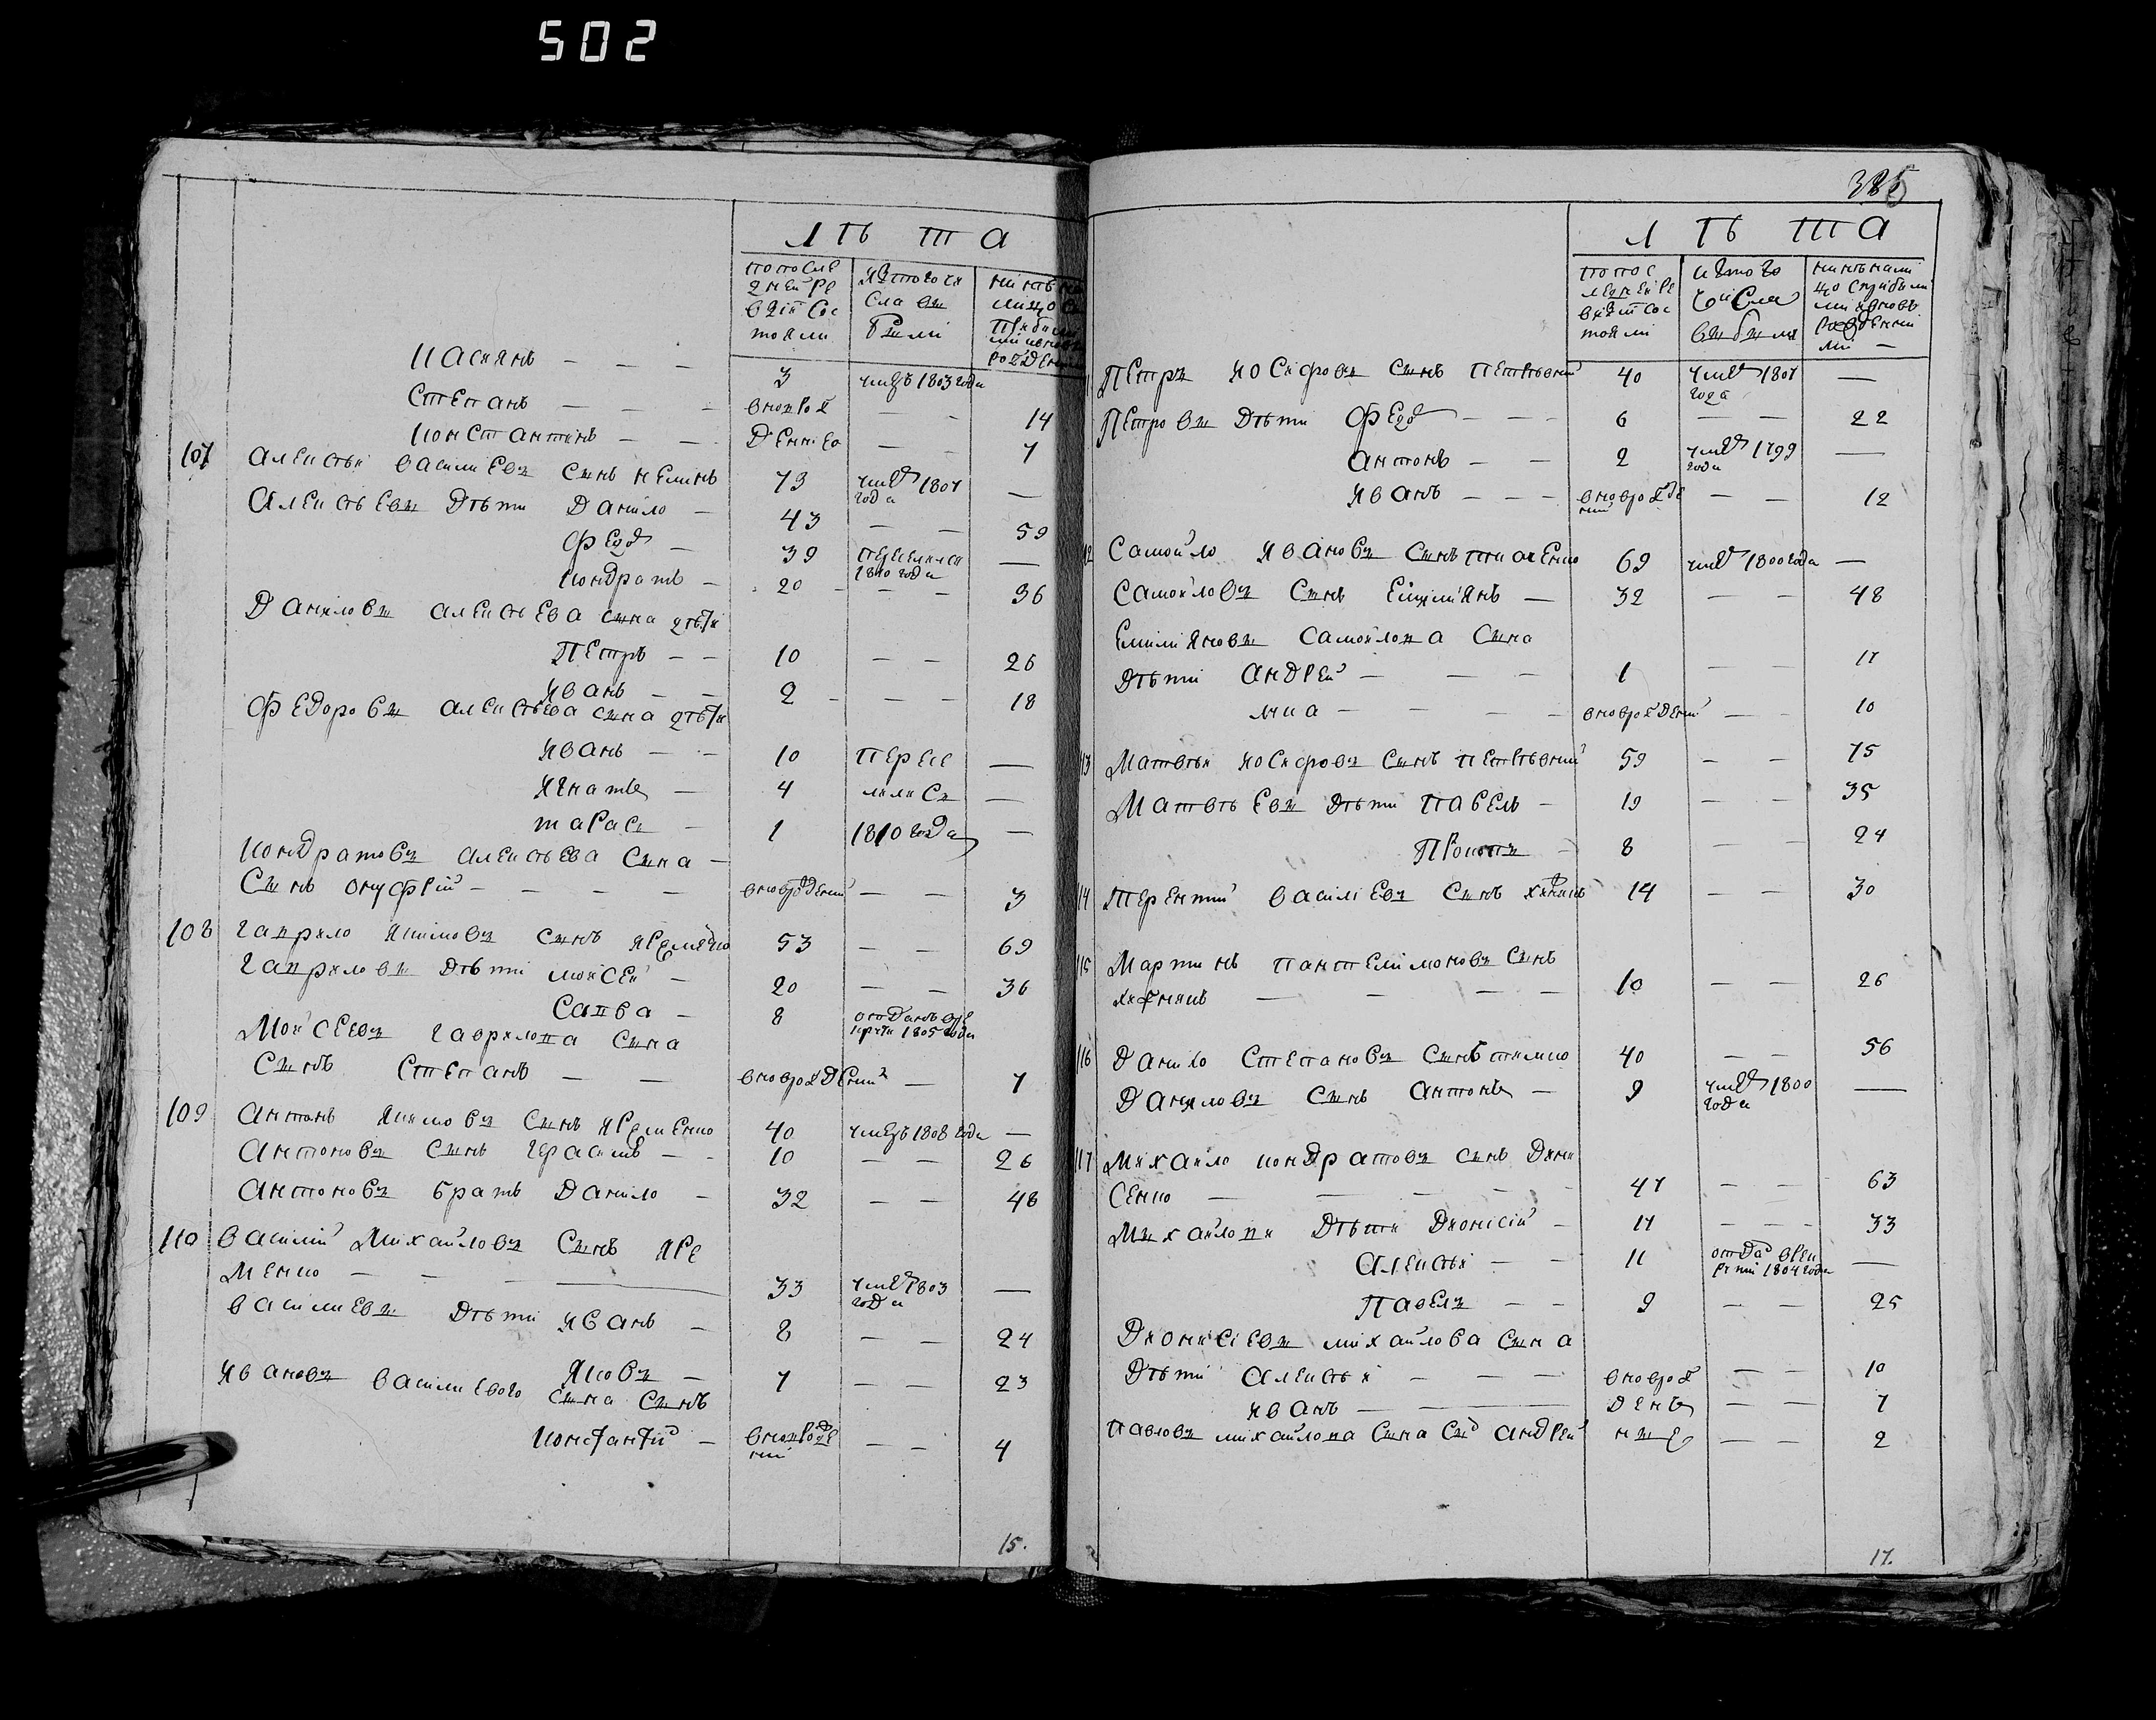 502
ЛѢТА
по после
дней ре
визіи сос
тояли
изтого чи
сла вы
были
Касиянъ — — — 3 умеръ 1803 года
Степанъ — — — вновь рож — — 14
Константинъ — — денніе — 7
107 Алексѣй Васильевъ сынъ 73 умеръ 1807 года —
Алексѣевы дѣти Данило — 43 — — 59
Федоръ — 39 1810 года —
Кондратъ — 20 — — 36
Даниловы Алексѣева сына дѣти
Петръ — — 10 — — 26
Иванъ — — 2 — — 18
Федоровы Алексѣева сына дѣти
Иванъ — — 10 пересе —
Игнатъ — 4 лились —
Тарасъ — 1 1810 года —
Кондратовъ Алексѣева сына —
сынъ Онуфрій — — — — вноврожденній — — 3
108 Гаврило Якимовъ сынъ 53 — — 69
Гавриловы дѣти Мойсей — 20 — — 36
Савва — 8 отданъ врекруты 1805 года
Мойсеевъ Гаврилова сына
сынъ Степанъ — — вноврожденній — 7
109 Антонъ сынъ Яременко 40 умеръ 1808 года —
Антоновъ сынъ Герасимъ — — 10 — — 26
Антоновъ братъ Данило — 32 — — 48
110 Василій Михайловъ сынъ Яре
менко — — — 33 умеръ 1803 года —
Васильевы дѣти Иванъ — 8 — — 24
Яковъ — 7 — — 23
Ивановъ Васильевого сына сынъ
Константій — вноврожденній — — 4
15.
385
ЛѢТА
по пос
ледней ре
визіи сос
тояли
изтого
числа
выбыли
Петръ Іосифовъ сынъ 40 умеръ 1807 года —
Петровы дѣти Федоръ — — — 6 — — 22
Антонъ — — 2 умеръ 1799 года —
Иванъ — — — вноврожденній — — 12
112 Самойло Ивановъ сынъ 69 умеръ 1800 года —
Самойловъ сынъ Емильянъ — 32 — — 48
Емильяновы Самойлова сына
дѣти Андрей — — — 1 — — 17
— — — вноврожденній — — 10
113 Матвѣй Іосифовъ сынъ 59 — — 75
Матвѣевы дѣти Павелъ — 19 — — 35
Прокопъ — 8 — — 24
114 Терентій Васильевъ сынъ 14 — — 30
115 Мартинъ Пантелимоновъ сынъ
— — — — 10 — — 26
116 Данило Степановъ сынъ 40 — — 56
Даниловъ сынъ Антонъ — 9 умеръ 1800 года —
117 Михайло Кондратовъ сынъ Дени
сенко — — — — 47 — — 63
Михайлови дѣти Діонисій — 17 — — 33
Алексѣй — — 11 отданъ врекрути 1804 года —
Павелъ — — 9 — — 25
Діонисіевы Михайлова сына
дѣти Алексѣй — — — вноврож — — 10
Иванъ — — день — — 7
Павловъ Михайлова сына Андрей — — 2
17.